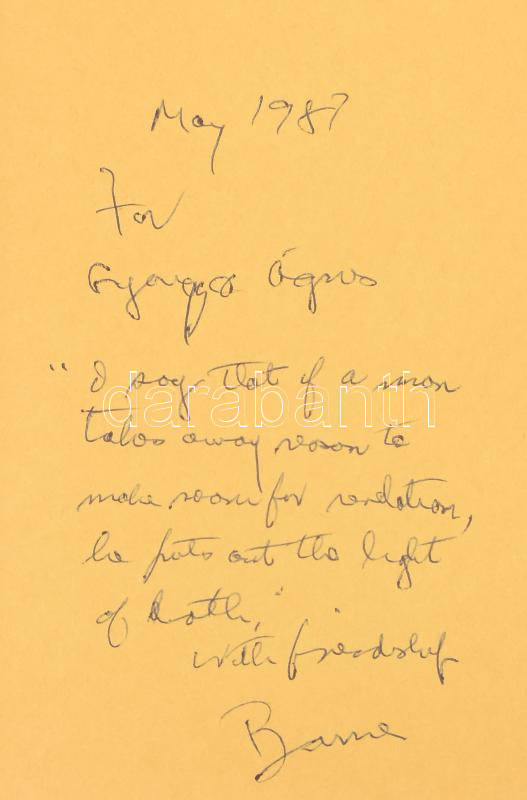 May 1987
For
Ágnes
"I say that if a man
darabanth
takes away reason to
make room for revelation,
he puts out the light
of both,"
with friendship